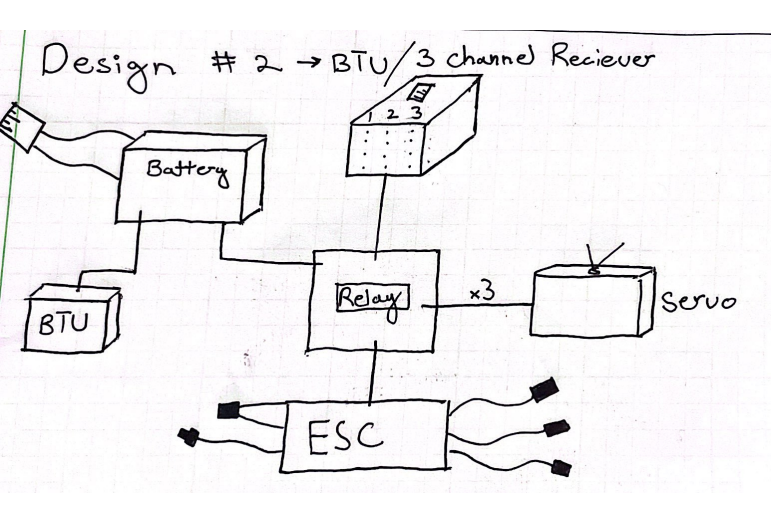 Design # 2 → BTU/3 channel Reciever
1 2 3
Battery
BTU
Relay
x3
Servo
ESC